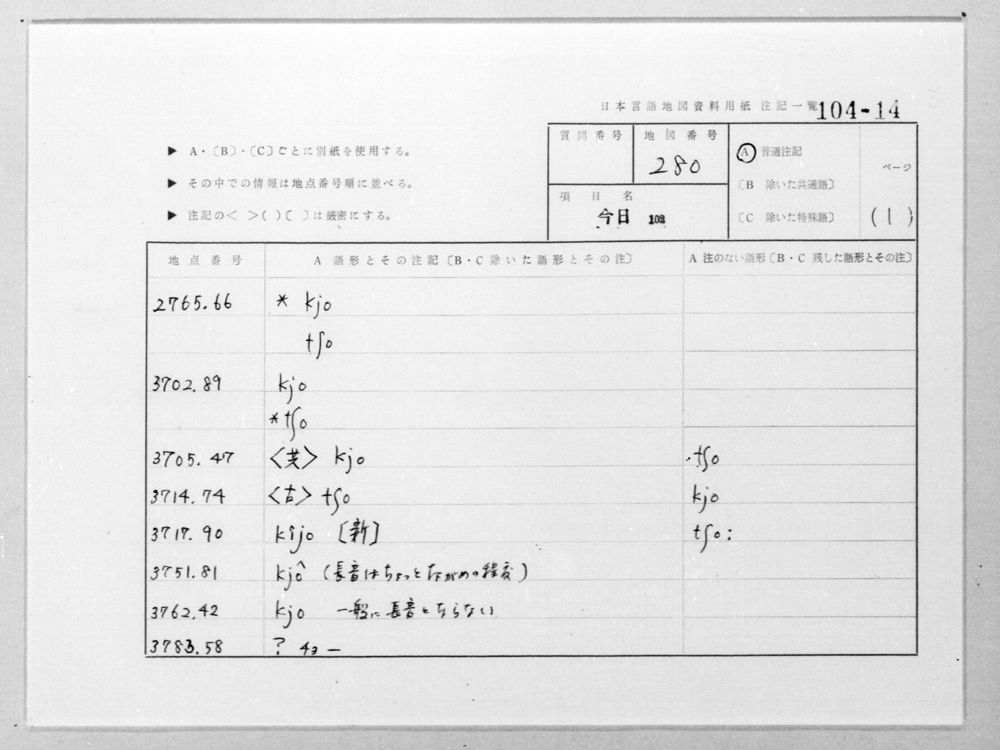 日本言語地図資料用紙 注記一覧 104-14
▶ A・〔B〕・〔C〕ごとに別紙を使用する。
▶ その中での情報は地点番号順に並べる。
▶ 注記の< >( )〔 〕は厳密にする。
質問番号
地図番号
280
項目名
今日 102
Ⓐ 普通注記
〔B 除いた共通語〕
〔C 除いた特殊語〕
ページ
(1)
地点番号 A 語形とその注記〔B・C 除いた語形とその注〕 A 注のない語形〔B・C 残した語形とその注〕
2765.66 * kjo
tʃo
3702.89 kjo
*tʃo
3705.47 <共> kjo tʃo
3714.74 <古> tʃo kjo
3717.90 kîjo [新] tʃo:
3751.81 kjô (長音はちょっとながめの程度)
3762.42 kjo 一般に長音とならない
3783.58 ? チョー